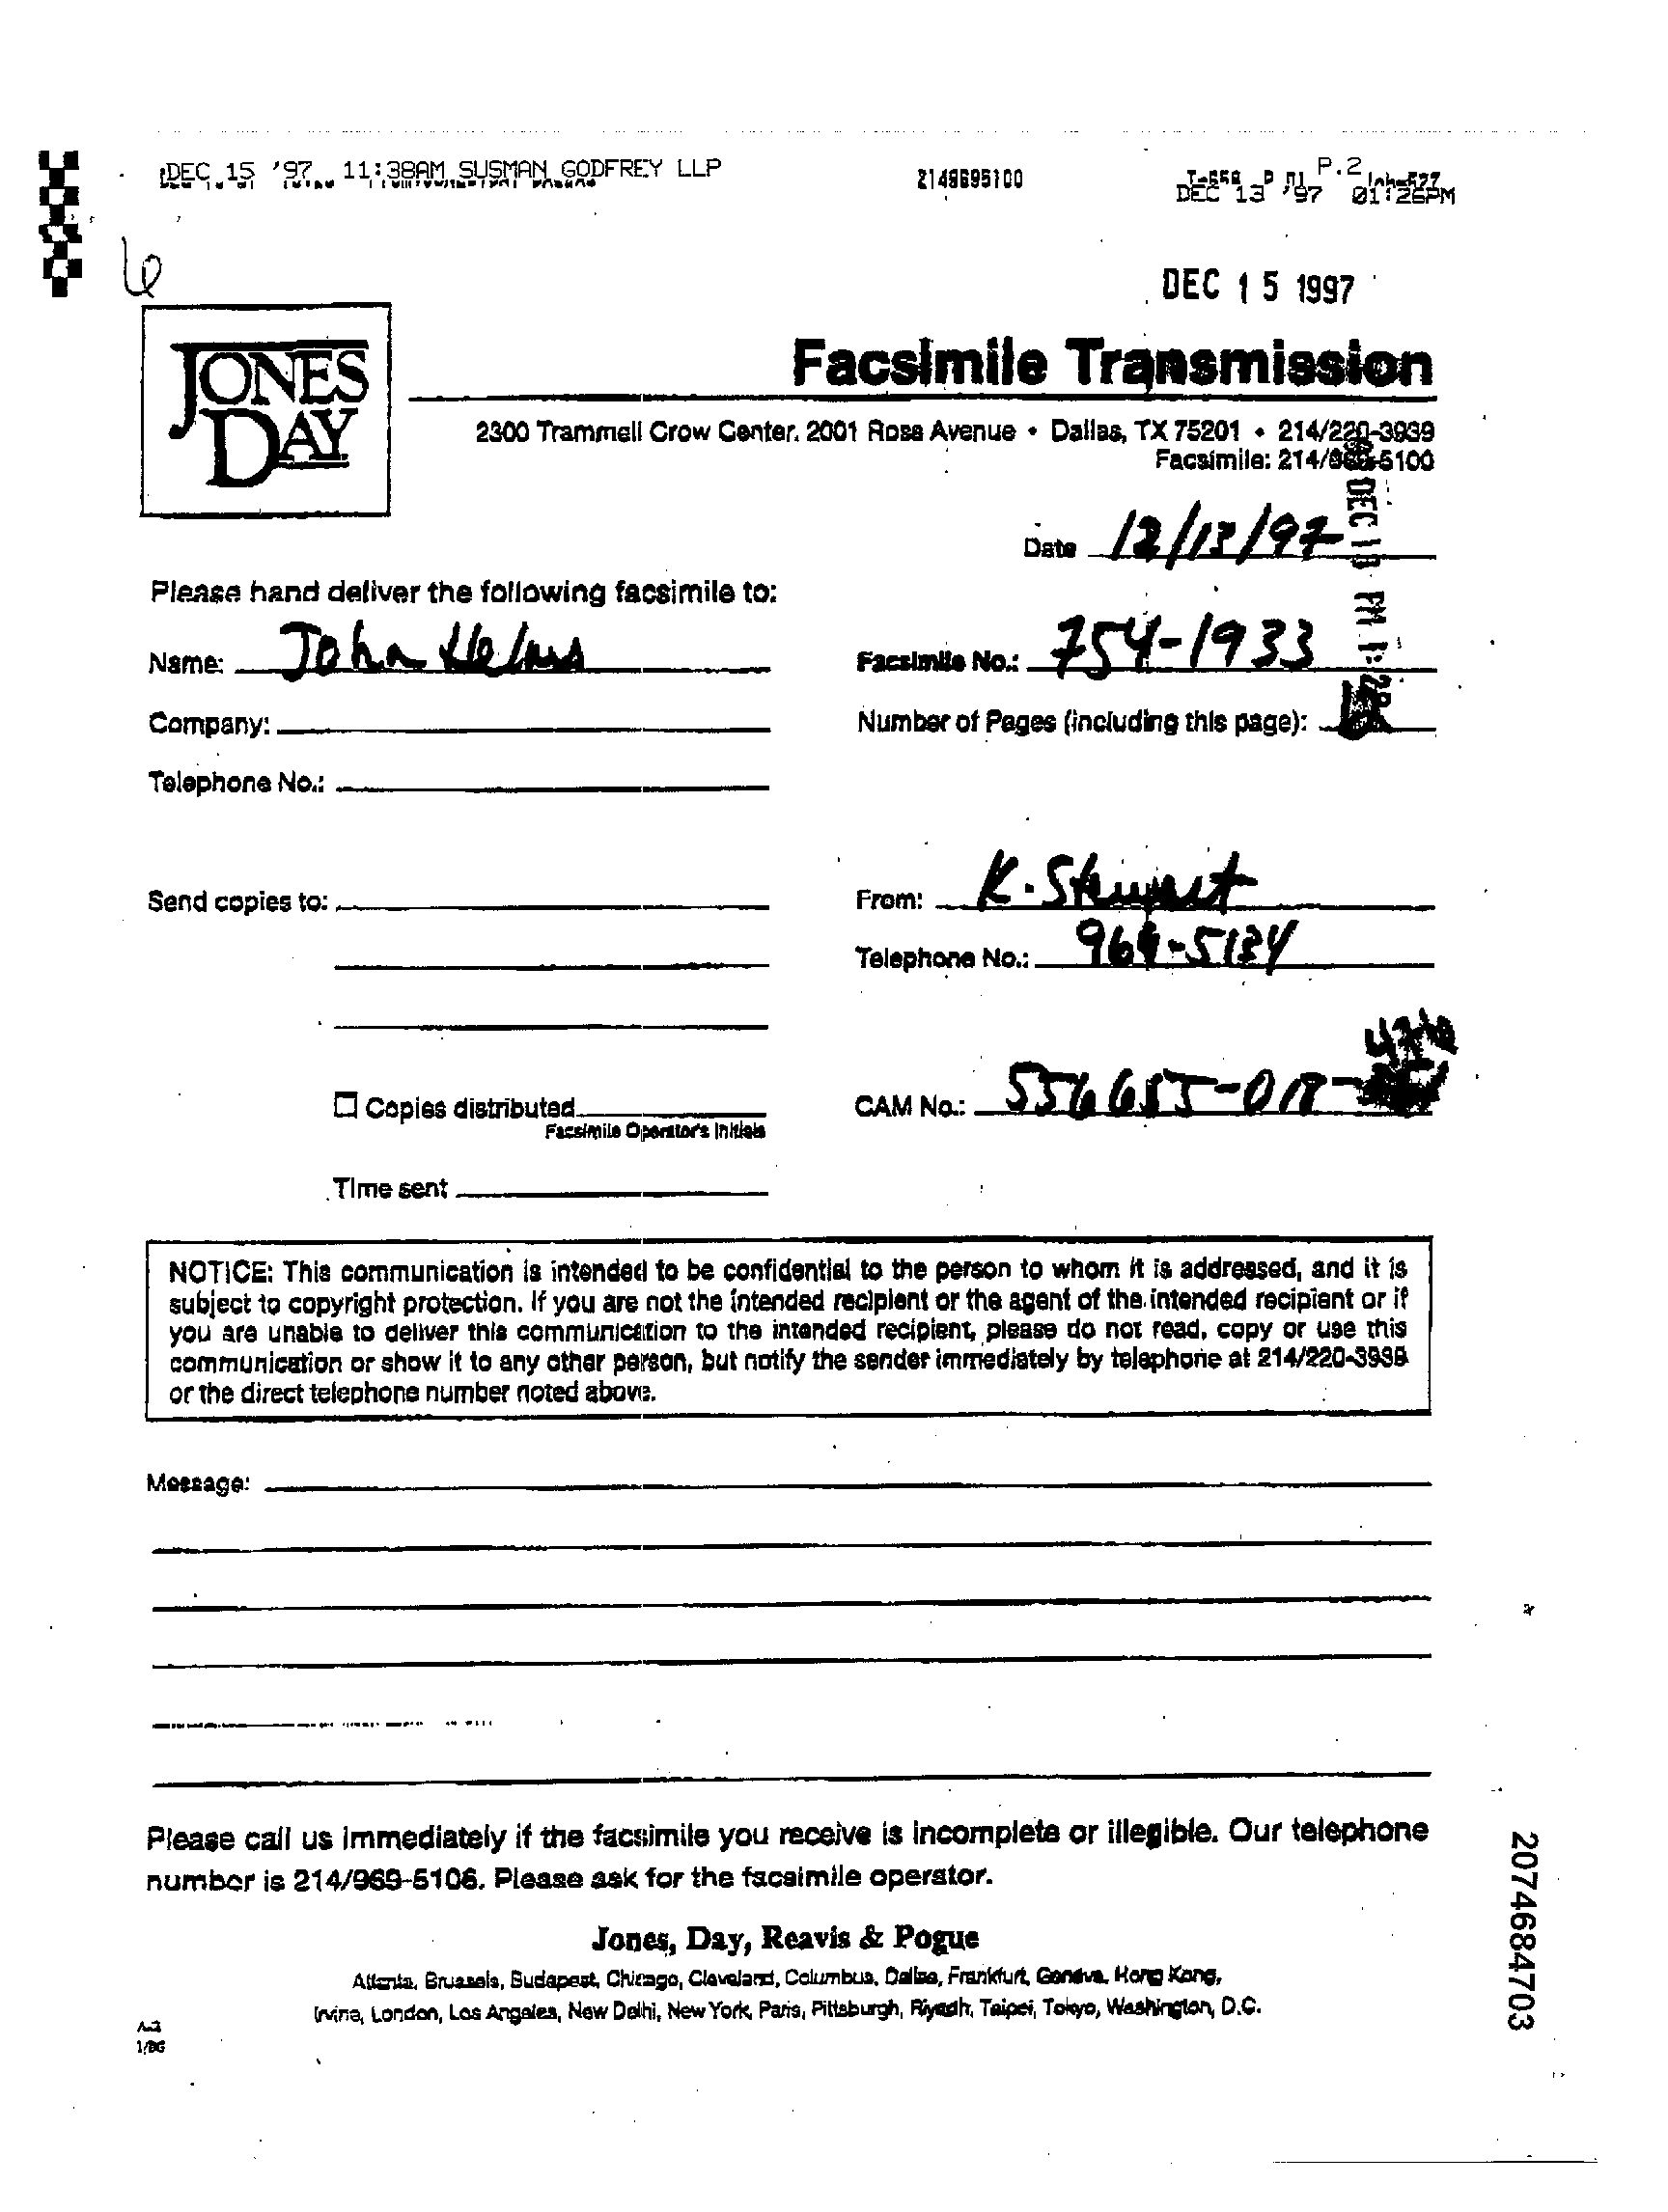 DEC 15 '97 11:38AM SUSMAN GODFREY LLP
2149695100
P.2
DEC 13 '97 01:26PM
DEC 15 1997
JONES
DAY
Facsimile Transmission
2300 Trammell Crow Center, 2001 Ross Avenue • Dallas, TX 75201 • 214/220-3939
Facsimile: 214/969-5100
Date 12/13/97
Please hand deliver the following facsimile to:
Name: John Helms
Facsimile No.: 754-1933
Company:
Number of Pages (including this page):
Telephone No.:
Send copies to:
From: K. Stewart
Telephone No.: 969-5134
Copies distributed
Facsimile Operator's Initials
CAM No.: 556655-018-
Time sent
NOTICE: This communication is intended to be confidential to the person to whom it is addressed, and it is
subject to copyright protection. If you are not the intended recipient or the agent of the intended recipient or if
you are unable to deliver this communication to the intended recipient, please do not read, copy or use this
communication or show it to any other person, but notify the sender immediately by telephone at 214/220-3939
or the direct telephone number noted above.
Message:
Please call us immediately if the facsimile you receive is incomplete or illegible. Our telephone
number is 214/969-5106. Please ask for the facsimile operator.
Jones, Day, Reavis & Pogue
Atlanta, Brussels, Budapest, Chicago, Cleveland, Columbus, Dallas, Frankfurt, Geneva, Hong Kong,
Irvine, London, Los Angeles, New Delhi, New York, Paris, Pittsburgh, Riyadh, Taipei, Tokyo, Washington, D.C.
2074684703